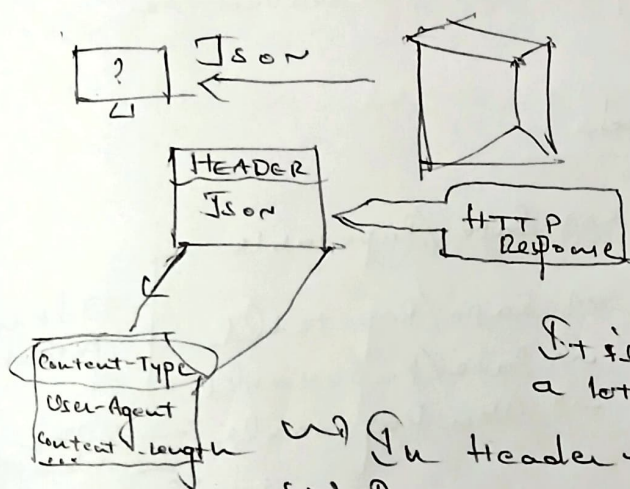 ?
Json
HEADER
Json
HTTP
Response
Content-Type
User-Agent
Content-Length
...
It is
a lot
In Header